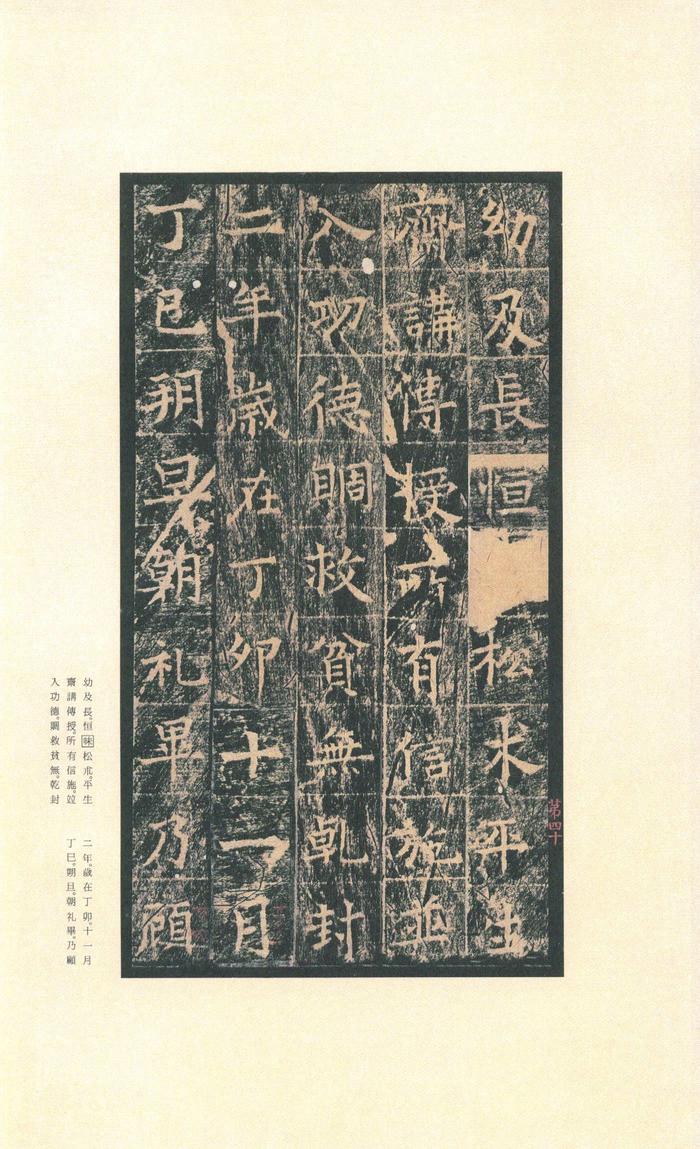 幼及長恒松朮平生
齋講傳授所有信施並
入功德賙救貧無乾封
二年歲在丁卯十一月
丁巳朔旦朝礼畢乃顧
第四十
幼及長。恒味松朮。平生
齋講傳授。所有信施。竝
入功德。賙救貧無。乾封
二年。歲在丁卯。十一月
丁巳。朔旦。朝礼畢。乃顧